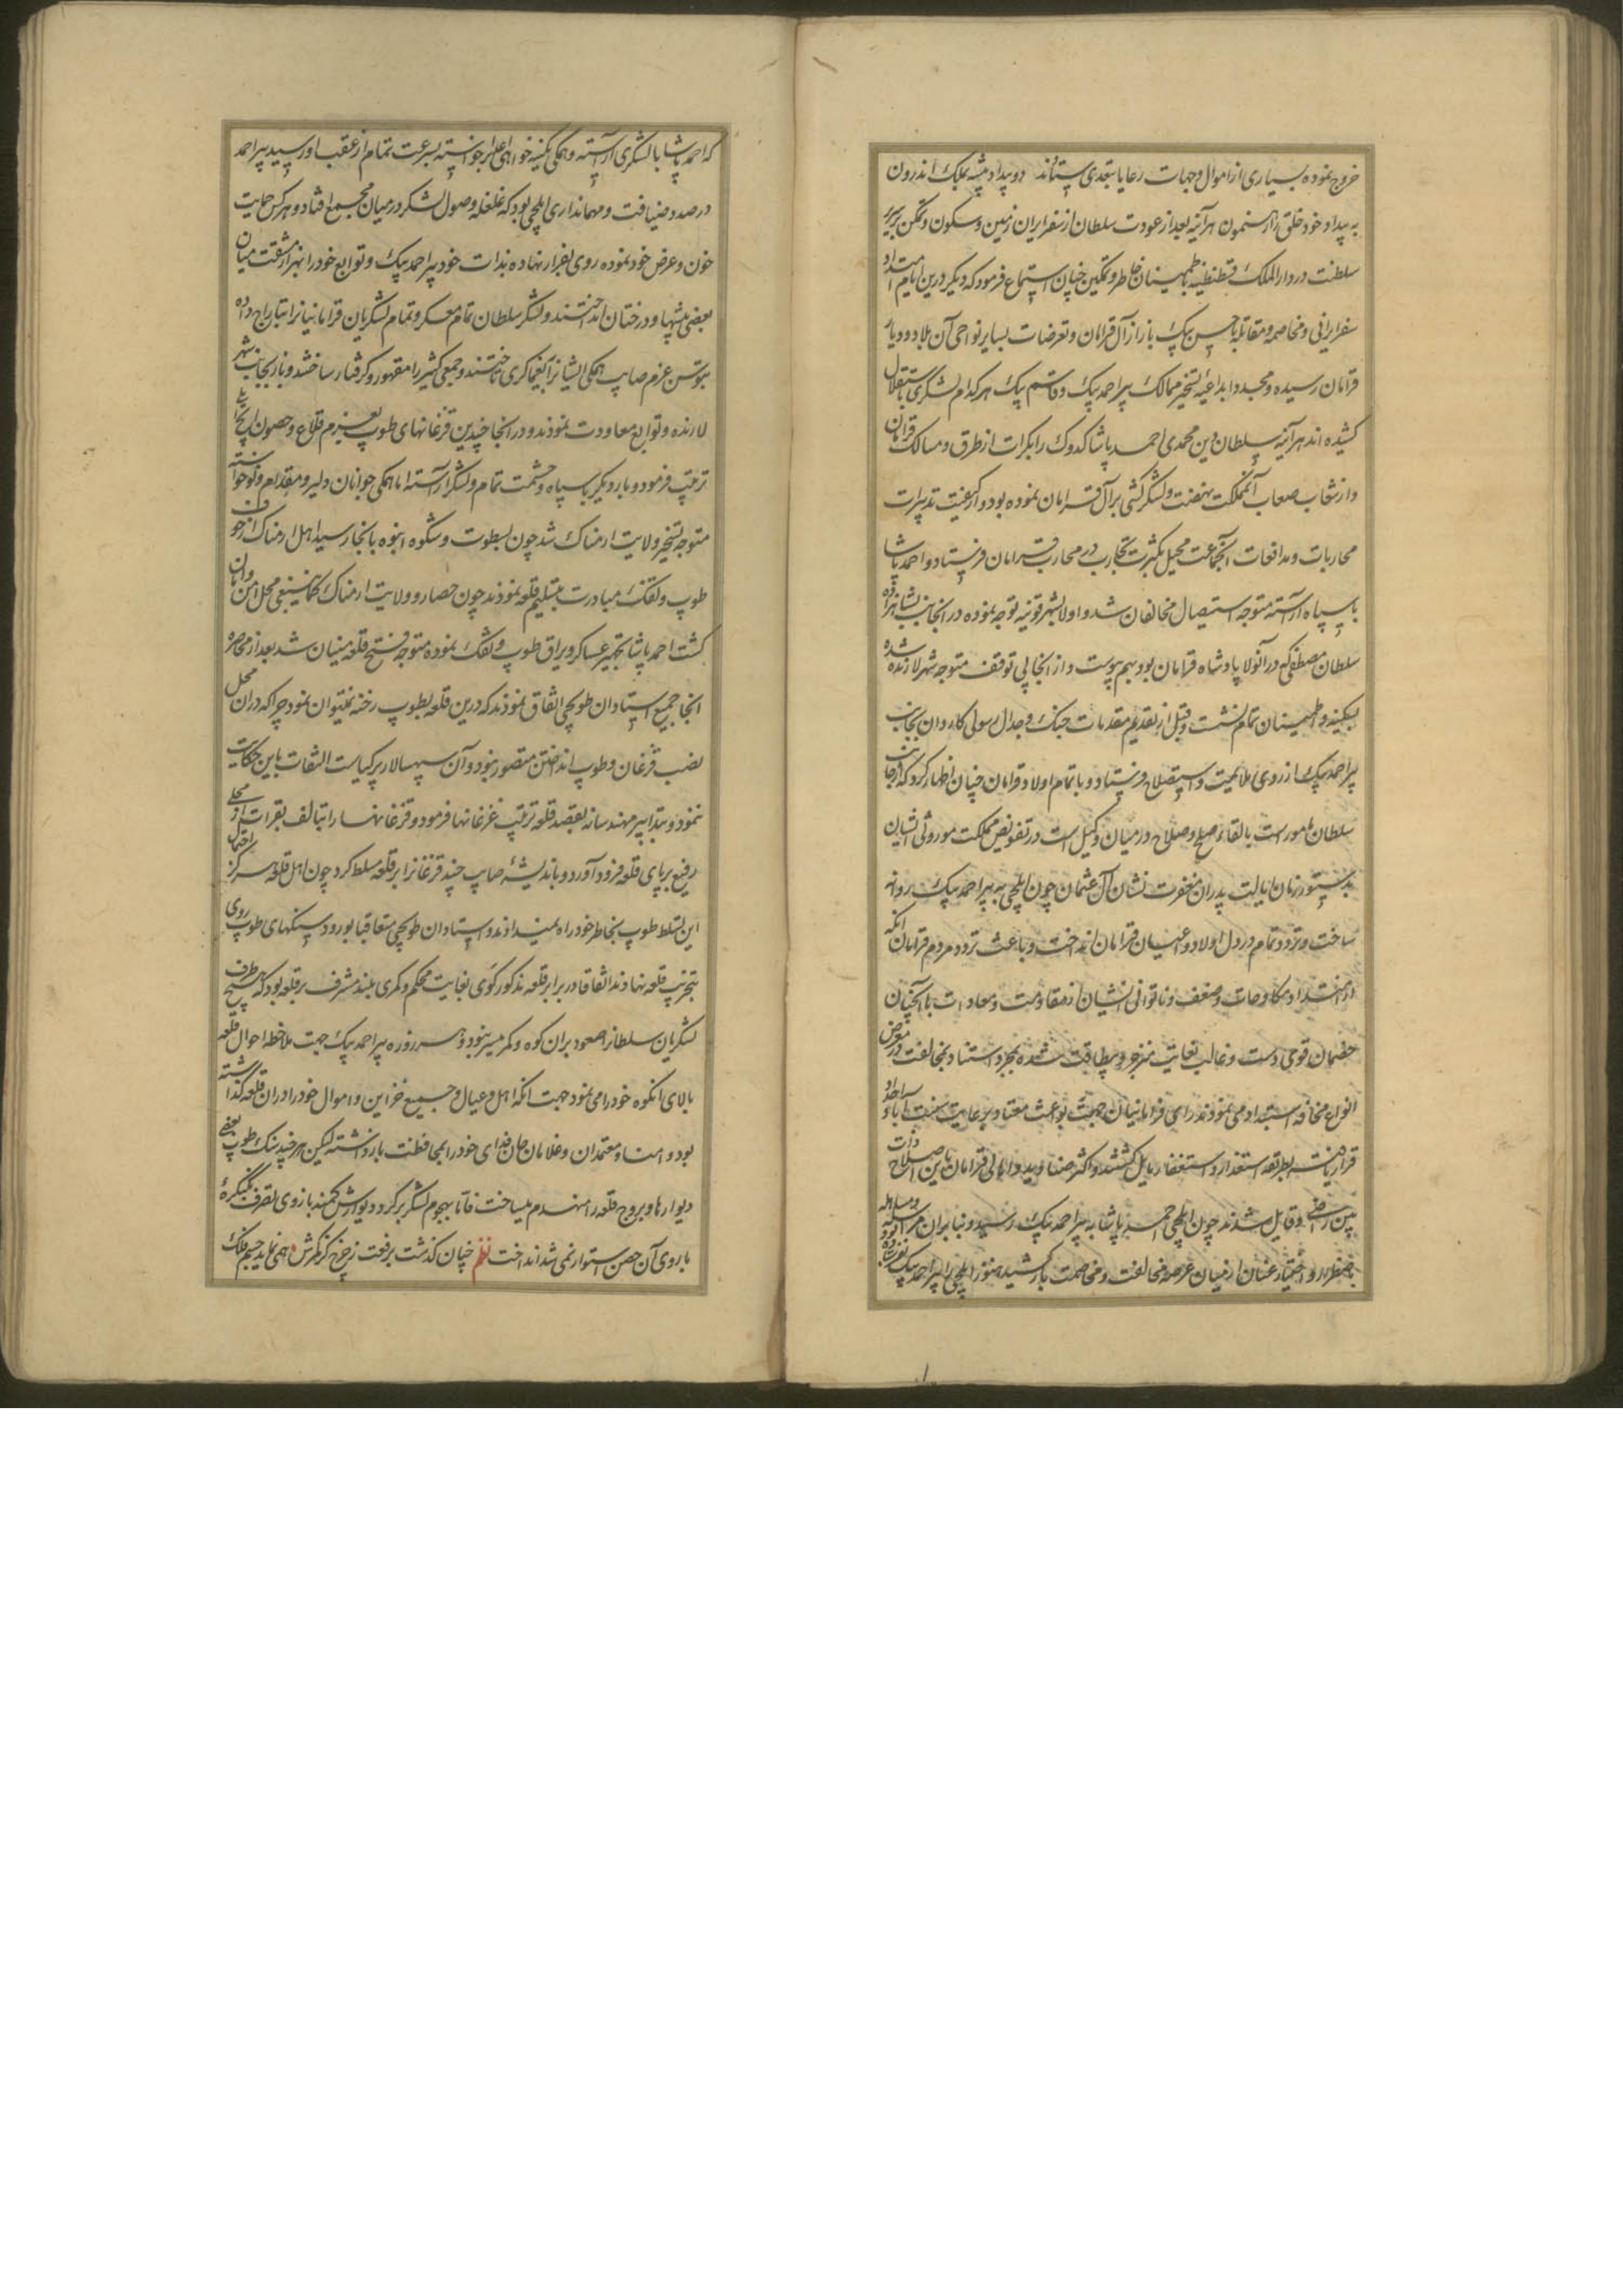 خروج نموده بسیاری از اموال و جهات رعایا بتعدی ستانند دو بیداد پیشه بملک اندرون
به بیداد خود خلق را رهنمون هر آینه بعد از عودت سلطان از سفر ایران زمین و سکون و تمکن بر سریر
سلطنت در دار الملک قسطنطنیه باطمینان خاطر و تمکین چنان استماع فرمود که دیگر درین ایام امتداد
سفر ایرانی و مخاصمه و مقاتله با حسن بیک باز از آل قرامان و تعرضات بسایر نواحی آن بلاد و دیار
قرامان رسیده و مجددا بداعیه تسخیر ممالک پیر احمد بیک و قاسم بیک هر کدام لشکری باستقلال
کشیده اند هر آینه سلطان دین محمدی احمد پاشا کدوک را بکرات از طرق و مسالک قرامان
و از شعاب صعاب آن مملکت نهضت و لشکر کشی بر آل قرامان نموده بود و از کیفیت تدبیرات
محاربات و مدافعات آن جماعت محیل بکثرت تجارب در محارب قرامان فرستاد و احمد پاشا
با سپاه آراسته متوجه استیصال مخالفان شد و اولا بشهر قونیه توجه نموده در آنجا بشاهزاده
سلطان مصطفی که در آنولا پادشاه قرامان بود بهم پیوست و از آنجا بی توقف متوجه شهر لارنده شده
بسکینه و اطمینان تمام نشست و قبل از تقدیم مقدمات جنک و جدال رسولی کاردان بجانب
پیر احمد بیک از روی ملایمت و استصلاح فرستاد و با تمام اولاد قرامان چنان اظهار کرد که از جانب
سلطان مامورست بالقاء صلح و صلاح در میان و وکیل است در تفویض مملکت موروثی ایشان
بدستور زمان ایالت پدران مغفرت نشان آل عثمان چون ایلچی به پیر احمد بیک روانه
ساخت و تردد تمام در دل اولاد و اعیان قرامان انداخت و باعث تردد مردم قرامان آنکه
از امتداد مکاوحات و ضعف و ناتوانی ایشان از مقاومت و معادات با آنچنان
خصمان قوی دست و غالب بغایت منزجر و بیطاقت شده بمجرد استناد بمخالفت در معرض
انواع مخافه استبداد می نمودند
قرار یافته بطریقه استغفار مایل کشتند و اکثر صنادید و اهالی قرامان باین اصلاح ذات
بین راضی و قایل شدند چون ایلچی احمد پاشا به پیر احمد بیک رسید و بنا بران
باضطرار و اختیار عنان از میان عرصه مخالفت و مخاصمت باز کشید هنوز ایلچی را پیر احمد بیک
که احمد پاشا با لشکری آراسته و همگی بکینه خواهی اعدا برخواسته بسرعت تمام از عقب او رسید پیر احمد
در صدد ضیافت و مهمانداری ایلچی بود که غلغله وصول لشکر در میان مجمع افتاد و هر کس حمایت
خون و عرض خود نموده روی بفرار نهاده بذات خود پیر احمد بیک و توابع خود را بهزار مشقت میان
بعضی بیشها و درختان انداختند و لشکر سلطان تمام معسکر و تمام لشکریان قرامانیانرا بتاراج داده
بتوسن عزم صایب همگی ایشانرا بیغماگری تاختند و جمعی کثیر را مقهور و گرفتار ساختند و باز بجانب شهر
لارنده و توابع معاودت نمودند و در آنجا چندین قزغانهای طوپ بعزم قلاع و حصون
ترتیب فرمود و بار دیگر با سپاه و حشمت تمام و لشکر آراسته اما همگی جوانان دلیر و مقدام
متوجه تسخیر ولایت ارمناک شد چون بسطوت و شکوه انبوه بآنجا رسید اهل ارمناک از خوف
طوپ و تفنک مبادرت بتسلیم قلعه نمودند چون حصار و ولایت ارمناک کما ینبغی محل امن و امان
کشت احمد پاشا بتجهیز عساکر و یراق طوپ و تفنک نموده متوجه فتح قلعه مینان شد بعد از محاصره
آنجا جمیع استادان طوپچی اتفاق نمودند که درین قلعه بطوپ رخنه نمیتوان نمود چرا که در آن محل
نصب قزغان و طوپ انداختن متصور نبود و آن سپهسالار پر کیاست التفات باین حکایت
ننمود و بتدابیر مهندسانه بقصد قلعه ترتیب قزغانها فرمود و قزغانها را
رفیع بر پای قلعه فرود آورد و باندیشه صایب چند قزغانرا بر قلعه مسلط کرد چون اهل قلعه هرگز احتمال
این تسلط طوپ بخاطر خود راه نمیدادند و استادان طوپچی متعاقبا بورود سنکهای طوپ روی
بتخریب قلعه نهادند اتفاقا در برابر قلعه مذکور کوی بغایت محکم و کمری بلند مشرف بر قلعه بود که
لشکریان سلطانرا صعود بران کوه و کمر میسر نبود و هر روزه پیر احمد بیک جهت ملاحظه احوال قلعه
بالای آن کوه خود را می نمود جهت آنکه اهل و عیال و جمیع خزاین و اموال خود را در آن قلعه گذاشته
بود و امنا و معتمدان و غلامان جان فدای خود را بمحافظت باز داشته لیکن هر چند سنک طوپ بعضی
دیوارها و بروج قلعه را منهدم میساخت فاما بهجوم لشکر بر گرد دیوارش کمند بازوی تصرف بکنگره
باروی آن حصن استوار نمی شد انداخت نظم چنان گذشت برفعت ز چرخ کز کمرش همی نماید جسم فلک